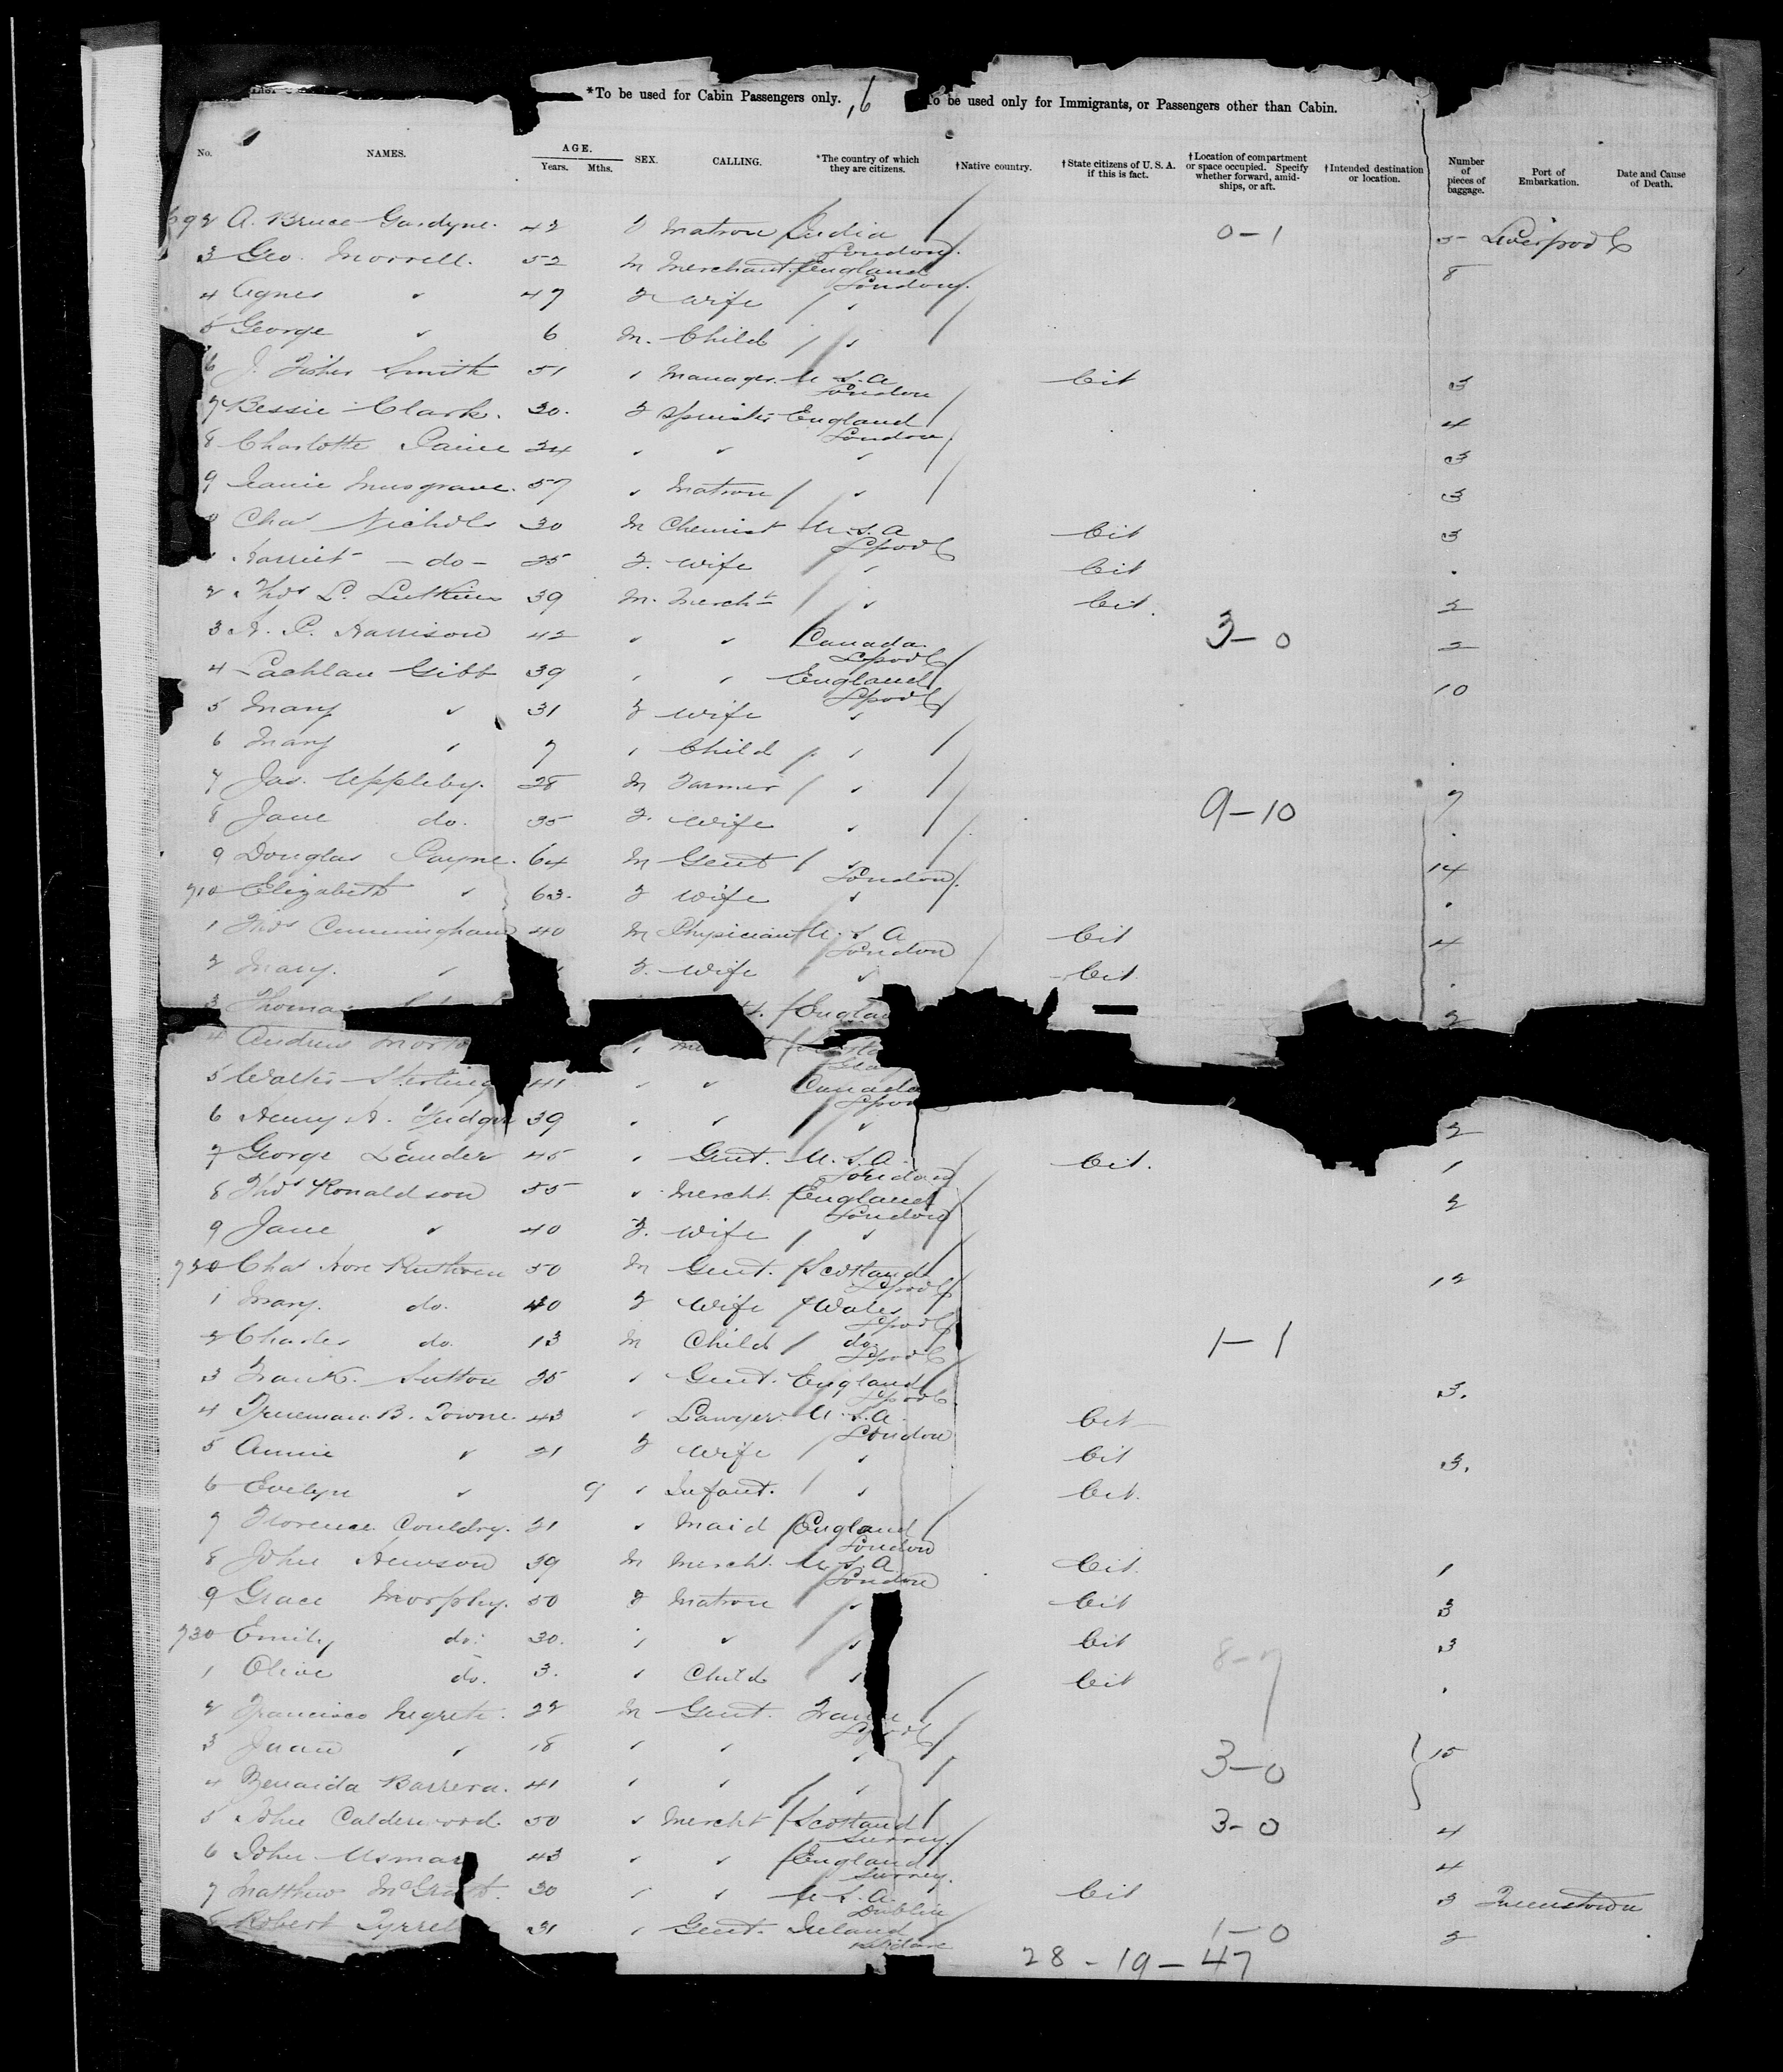 *To be used for Cabin Passengers only. 6 To be used only for Immigrants, or Passengers other than Cabin.
No. NAMES. AGE. Years. Mths. SEX. CALLING. *The country of which they are citizens. †Native country. †State citizens of U.S.A. if this is fact. †Location of compartment or space occupied. Specify whether forward, amidships, or aft. †Intended destination or location. Number of pieces of baggage. Port of Embarkation. Date and Cause of Death.
692 A. Bruce Gardyne. 42 Matron India London. 0-1 5 Liverpool
3 Geo. Morrell. 52 M Merchant England London. 8
4 Agnes " 47 F Wife "
5 George " 6 M. Child "
6 J. Fisher Smith 51 " Manager. U.S.A London Cit 3
7 Bessie Clark. 30. F Spinster England London 4
8 Charlotte 34 " " " 3
9 Musgrave. 57 " Matron " 3
Chas Nichols 30 M Chemist U.S.A Lpool Cit 3
Harriet - do - 25 F. Wife " Cit .
2 Thos L. 39 M. Mercht " Cit. 2
3 A. P. Harrison 42 " " Canada Lpool 3-0 2
4 Lachlan Gibb 39 " " England Lpool 10
5 Mary " 31 F Wife "
6 Mary " 7 " Child " .
7 Jas. Appleby. 28 M Farmer " 9-10 7
8 Jane do. 35 F. Wife " .
9 Douglas Payne. 64 M Gent " London. 14
710 Elizabeth " 63. F Wife " .
1 Thos Cunningham 40 M Physician U.S.A London Cit 4
2 Mary. " F. Wife " Cit. .
3 Thomas 2
4 Andrew
5 Walter Sterling 41 " " Canada
6 Henry A. 39 " " " 2
7 George Lauder 45 " Gent. U.S.A. London Cit. 1
8 Thos Ronaldson 55 " Mercht. England London 2
9 Jane " 40 F. Wife "
720 Chas Hore Ruthven 50 M Gent. Scotland Lpool 12
1 Mary. do. 40 F Wife Wales Lpool
2 Charles do. 13 M Child do. Lpool 1-1
3 Frank. Sutton 25 " Gent. England Lpool 3.
4 Trueman. B. Towne. 43 " Lawyer. U.S.A. London Cit
5 Annie " 21 F Wife " Cit 3.
6 Evelyn " 9 " Infant. " Cit.
7 Florence Couldry. 21 " Maid England London
8 John Hewson 39 M Mercht. U.S.A London Cit. 1
9 Grace Morphy. 50 F Matron " Cit 3
730 Emily do. 30. " " " Cit 8-7 3
1 Olive do. 3. " Child " Cit .
2 Francisco Negrete. 22 M Gent. France Lpool
3 Juan " 18 " " " 3-0 15
4 Zenaida Barrera. 41 " " "
5 John Calderwood. 50 " Mercht Scotland Surrey. 3-0 4
6 John Usmar 43 " " England Surrey. 4
7 Matthew McGrath. 30 " " U.S.A. Dublin Cit 3 Queenstown
8 Robert Tyrrell 31 " Gent. Ireland Kildare 1-0 2
28-19-47